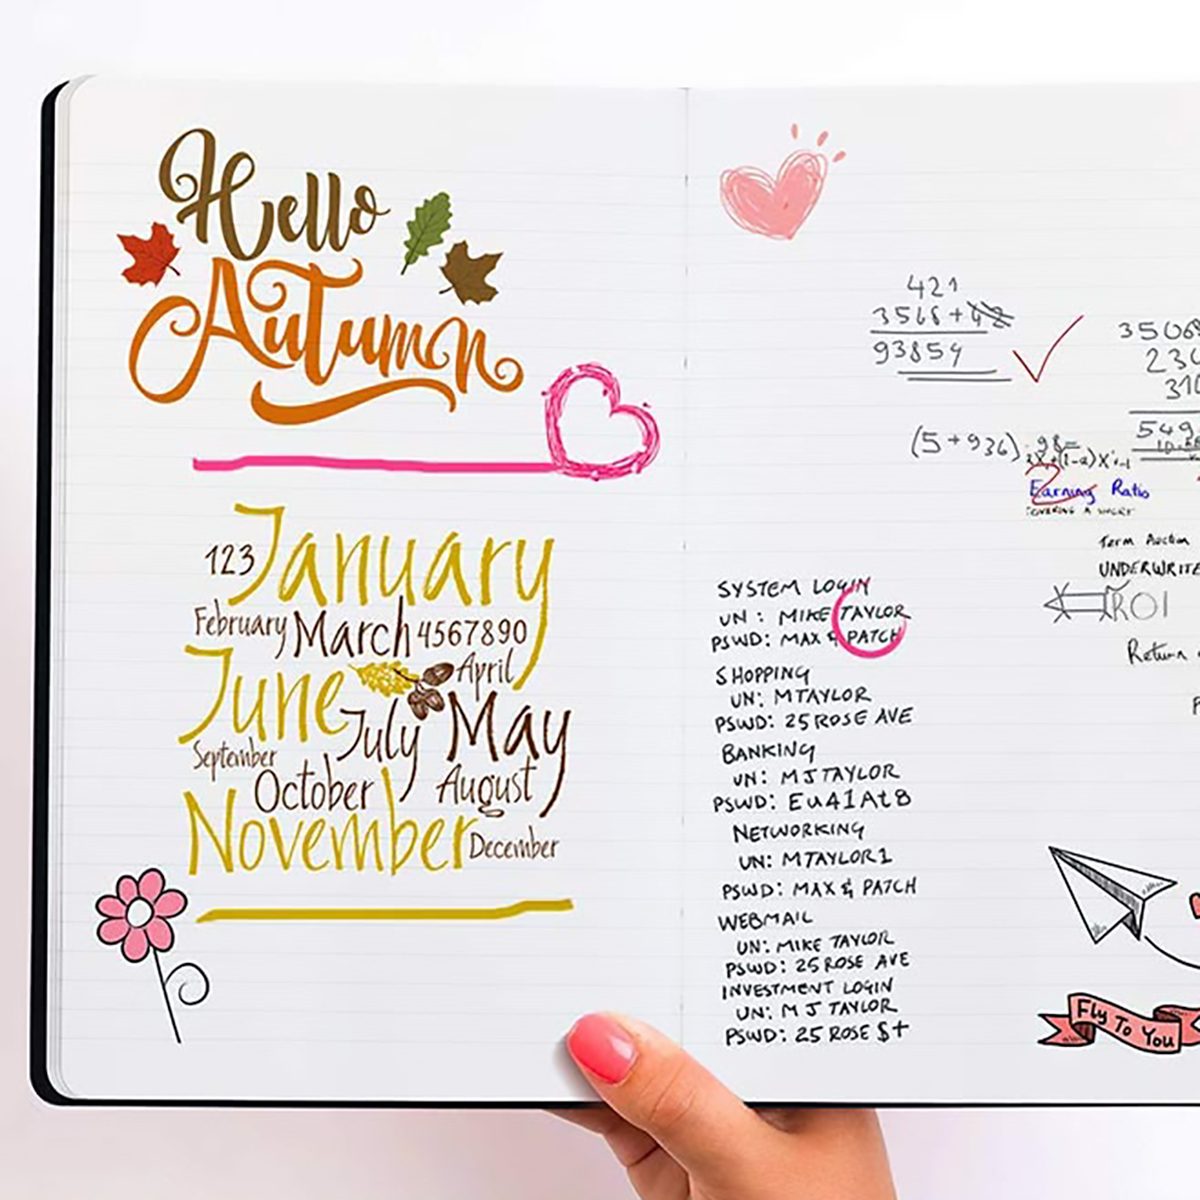 Hello
Autumn
123 January
February March 4567890
June April
July May
September
October August
November December
421
3568 + 42
93854
(5+936)
Earning Ratio
Term Auction
ROI
Return
SYSTEM LOGIN
UN: MIKE TAYLOR
PSWD: MAX & PATCH
SHOPPING
UN: MTAYLOR
PSWD: 25 ROSE AVE
BANKING
UN: MJTAYLOR
PSWD: Eu41At8
NETWORKING
UN: MTAYLOR1
PSWD: MAX & PATCH
WEBMAIL
UN: MIKE TAYLOR
PSWD: 25 ROSE AVE
INVESTMENT LOGIN
UN: MJ TAYLOR
PSWD: 25 ROSE $+
Fly To You